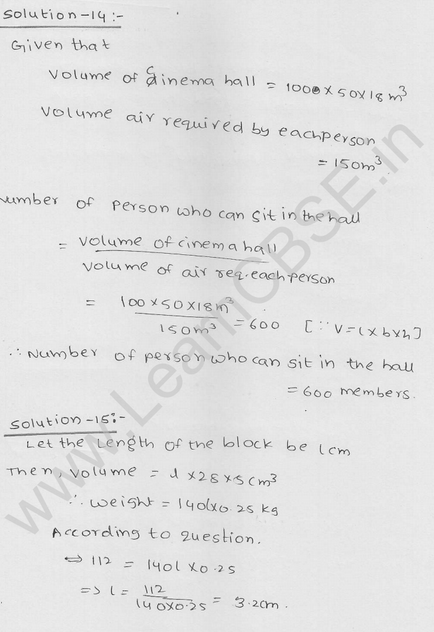 Solution-14:-
Given that
Volume of Cinema hall = 1000 × 50 × 18 m³
Volume air required by each person
= 150m³
Number of person who can sit in the hall
= Volume of cinema hall
Volume of air req. each person
= 100 × 50 × 18 m³
150m³
= 600 [∵ V = l × b × h]
∴ Number of person who can sit in the hall
= 600 members.
Solution-15:-
Let the Length of the block be l cm
Then, Volume = l × 28 × 5 cm³
∴ weight = 140l × 0.25 kg
According to question.
⇔ 112 = 140l × 0.25
=> l = 112
140×0.25
= 3.2cm.
www.LearnCBSE.in